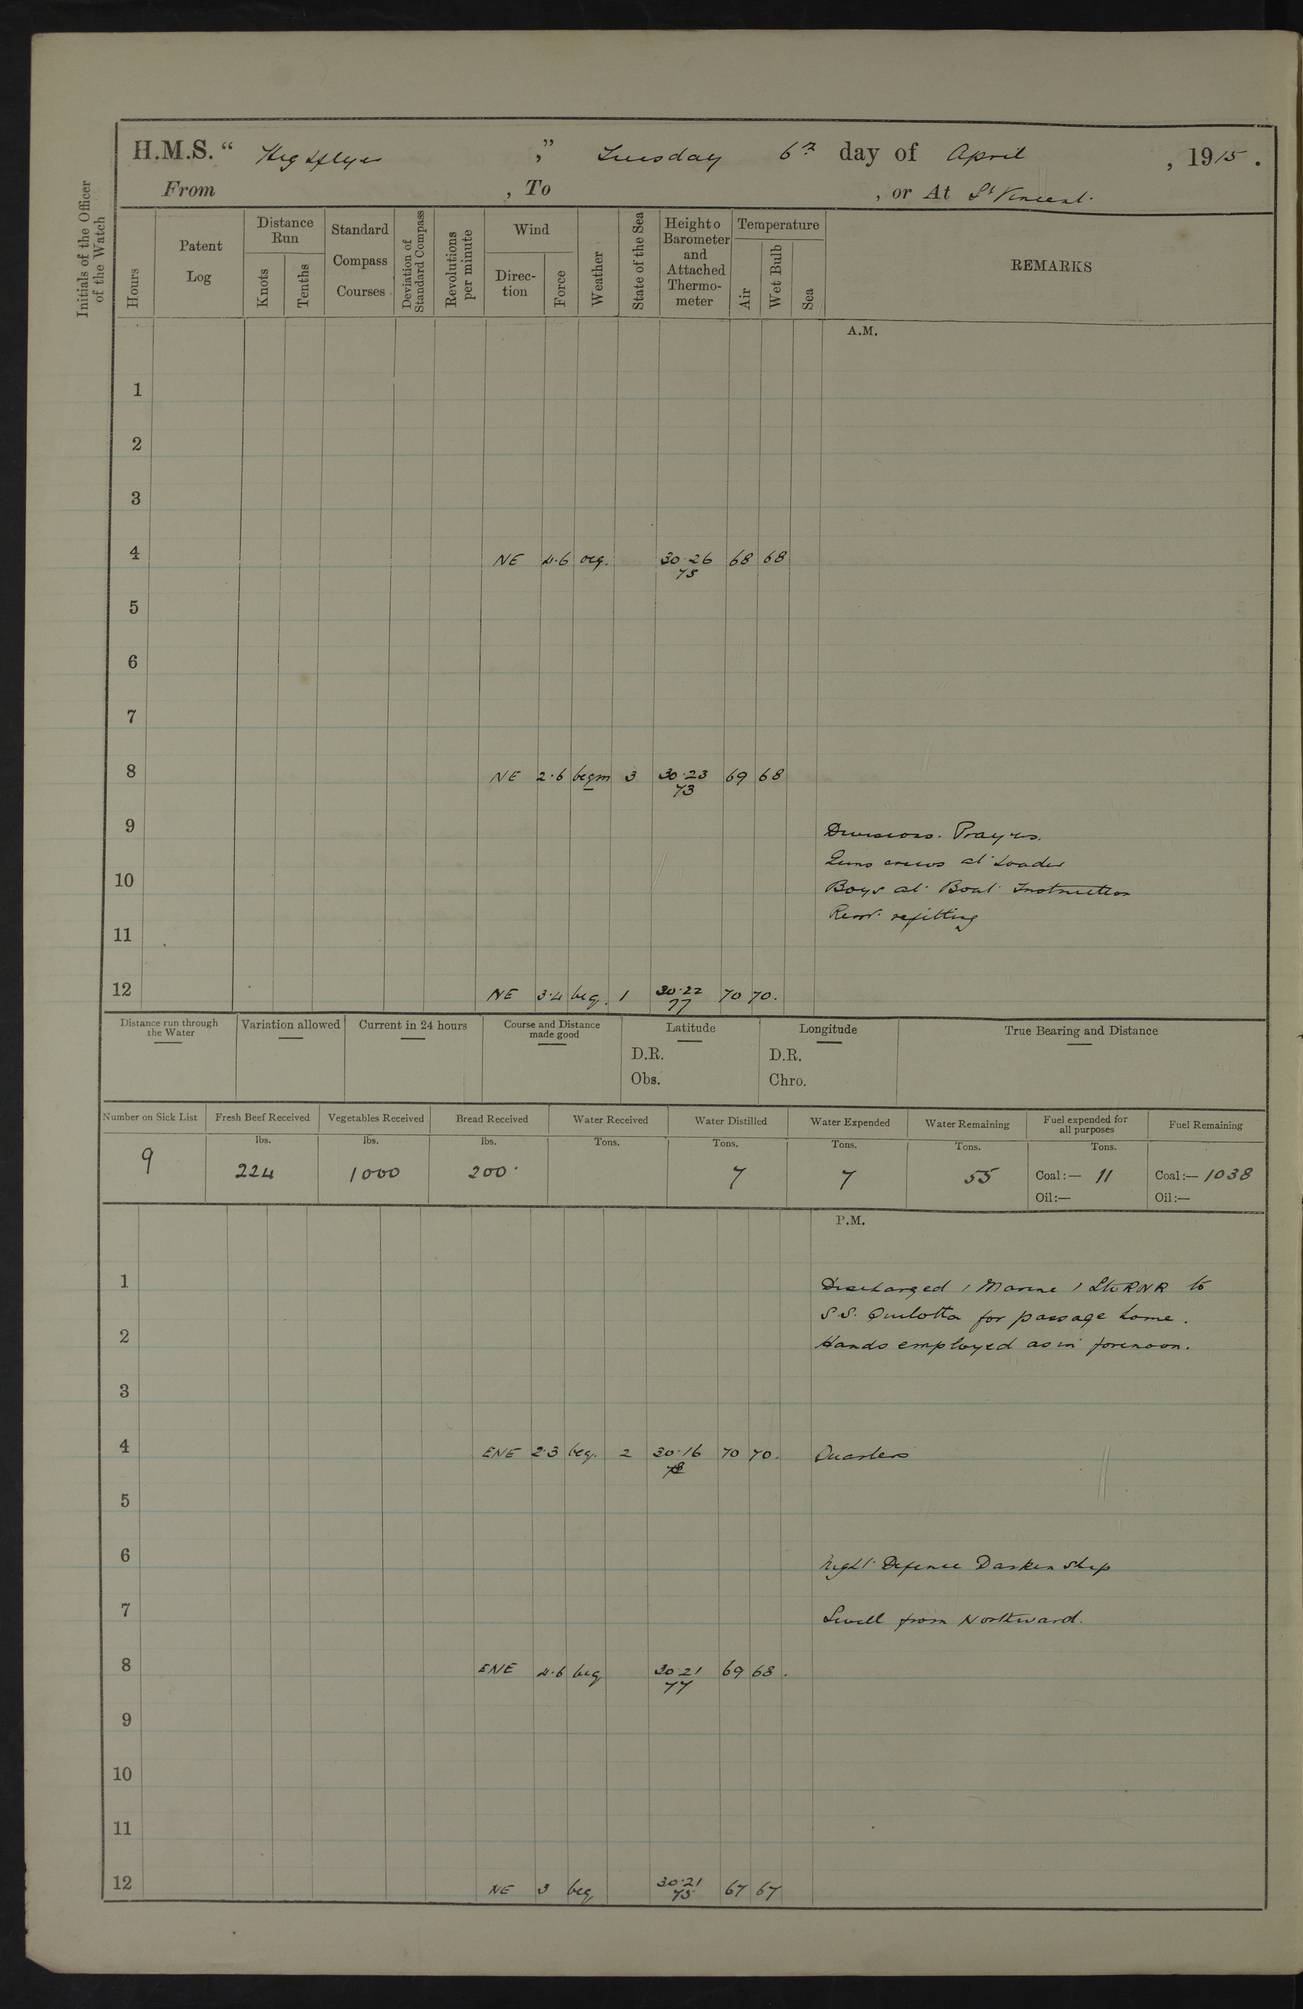 H.M.S. “ Highflyer ,” Tuesday 6th day of April , 1915 .
From , To , or At St Vincent.
Initials of the Officer of the Watch
Hours
Patent Log
Distance Run
Knots
Tenths
Standard Compass Courses
Deviation of Standard Compass
Revolutions per minute
Wind
Direc-tion
Force
Weather
State of the Sea
Height o Barometer and Attached Thermo-meter
Temperature
Air
Wet Bulb
Sea
REMARKS
A.M.
1
2
3
4 NE 4.6 ocg. 30.26 68 68
75
5
6
7
8 NE 2.6 bcgm 3 30.23 69 68
73
9 Divisions. Prayers.
Guns crews at Loader
10 Boys at Boat Instruction
Remr. refitting
11
12 NE 3.4 bcg. 1 30.22 70 70.
77
Distance run through the Water
Variation allowed
Current in 24 hours
Course and Distance made good
Latitude
D.R.
Obs.
Longitude
D.R.
Chro.
True Bearing and Distance
Number on Sick List Fresh Beef Received Vegetables Received Bread Received Water Received Water Distilled Water Expended Water Remaining Fuel expended for all purposes Fuel Remaining
lbs. lbs. lbs. Tons. Tons. Tons. Tons. Tons.
9 224 1000 200. 7 7 55 Coal:— 11 Coal:— 1038
Oil:— Oil:—
P.M.
1 Discharged 1 Marine 1 Sto RNR to
S.S. for passage home.
2 Hands employed as in forenoon.
3
4 ENE 2.3 bcg. 2 30.16 70 70. Quarters
78
5
6 Night Defence Darken Ship
7 Swell from Northward.
8 ENE 4.6 bcg 30.21 69 68.
77
9
10
11
12 NE 3 bcg 30.21 67 67
75